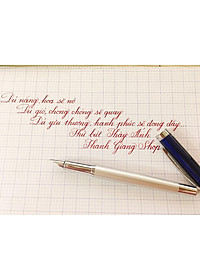 Đủ nắng, hoa sẽ nở
Đủ gió, chong chóng sẽ quay
Đủ yêu thương, hạnh phúc sẽ đong đầy...
Thủ bút Thầy Ánh
Thanh Giang Shop